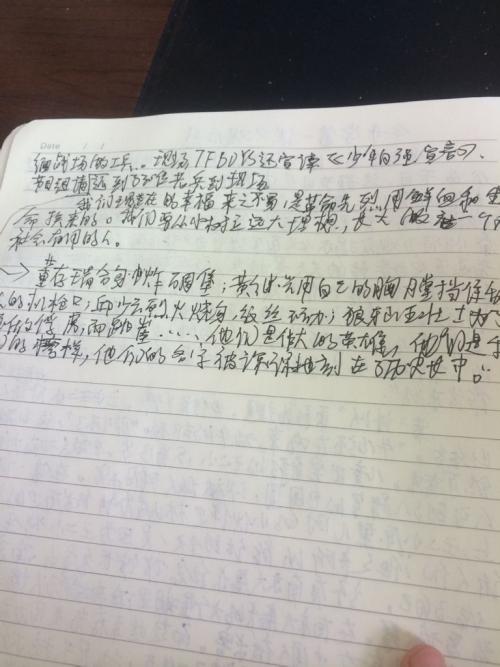 Date / /
个战场的士兵。现场TFBOYS还宣读《少年自强宣言》、
节目组请到3位老兵到现场
我们现在的幸福来之不易,是革命先烈用鲜血和生
命换来的。我们要从小树立远大理想,长大做一个
社会有用的人。
董存瑞舍身炸碉堡;黄继光用自己的胸膛挡住
的机枪口;邱少云烈火烧身,纹丝不动;狼牙山五壮士为了
而跳崖……他们是伟大的英雄,他们是
的榜样,他们的名字被深深地刻在历史中。